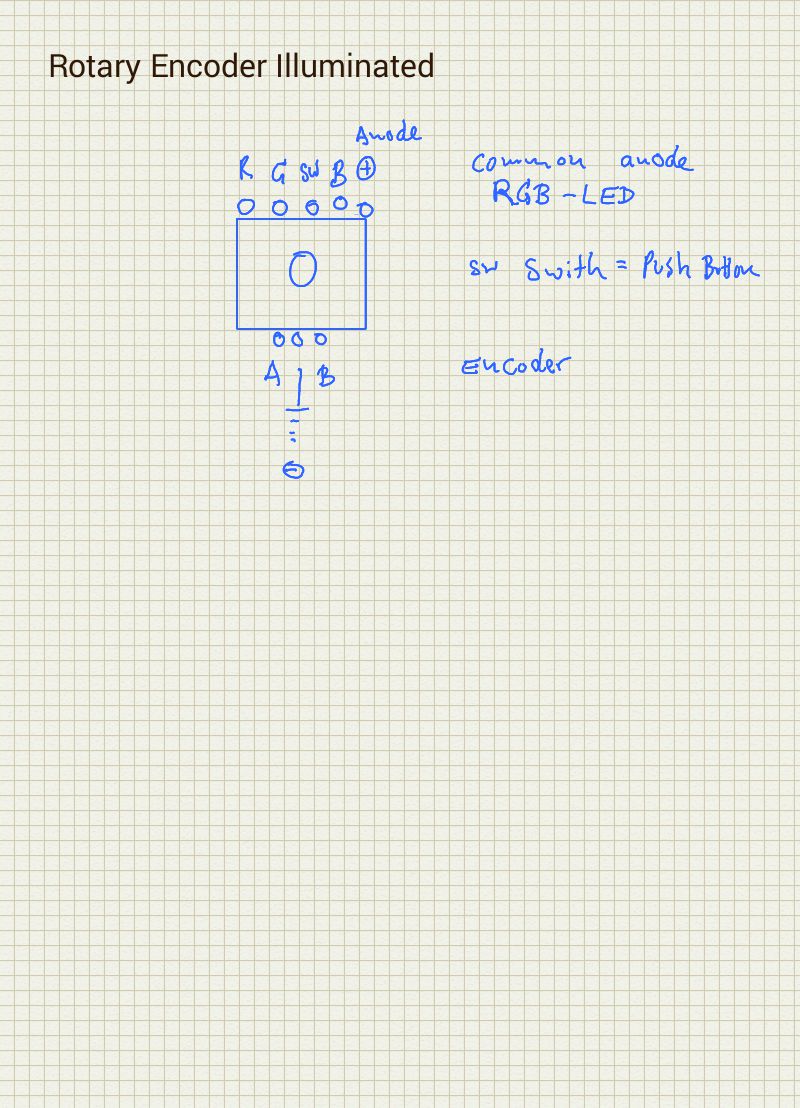 Rotary Encoder Illuminated
Anode
R G SW B +
Common anode
RGB - LED
SW Swith = Push Button
A B
Encoder
-